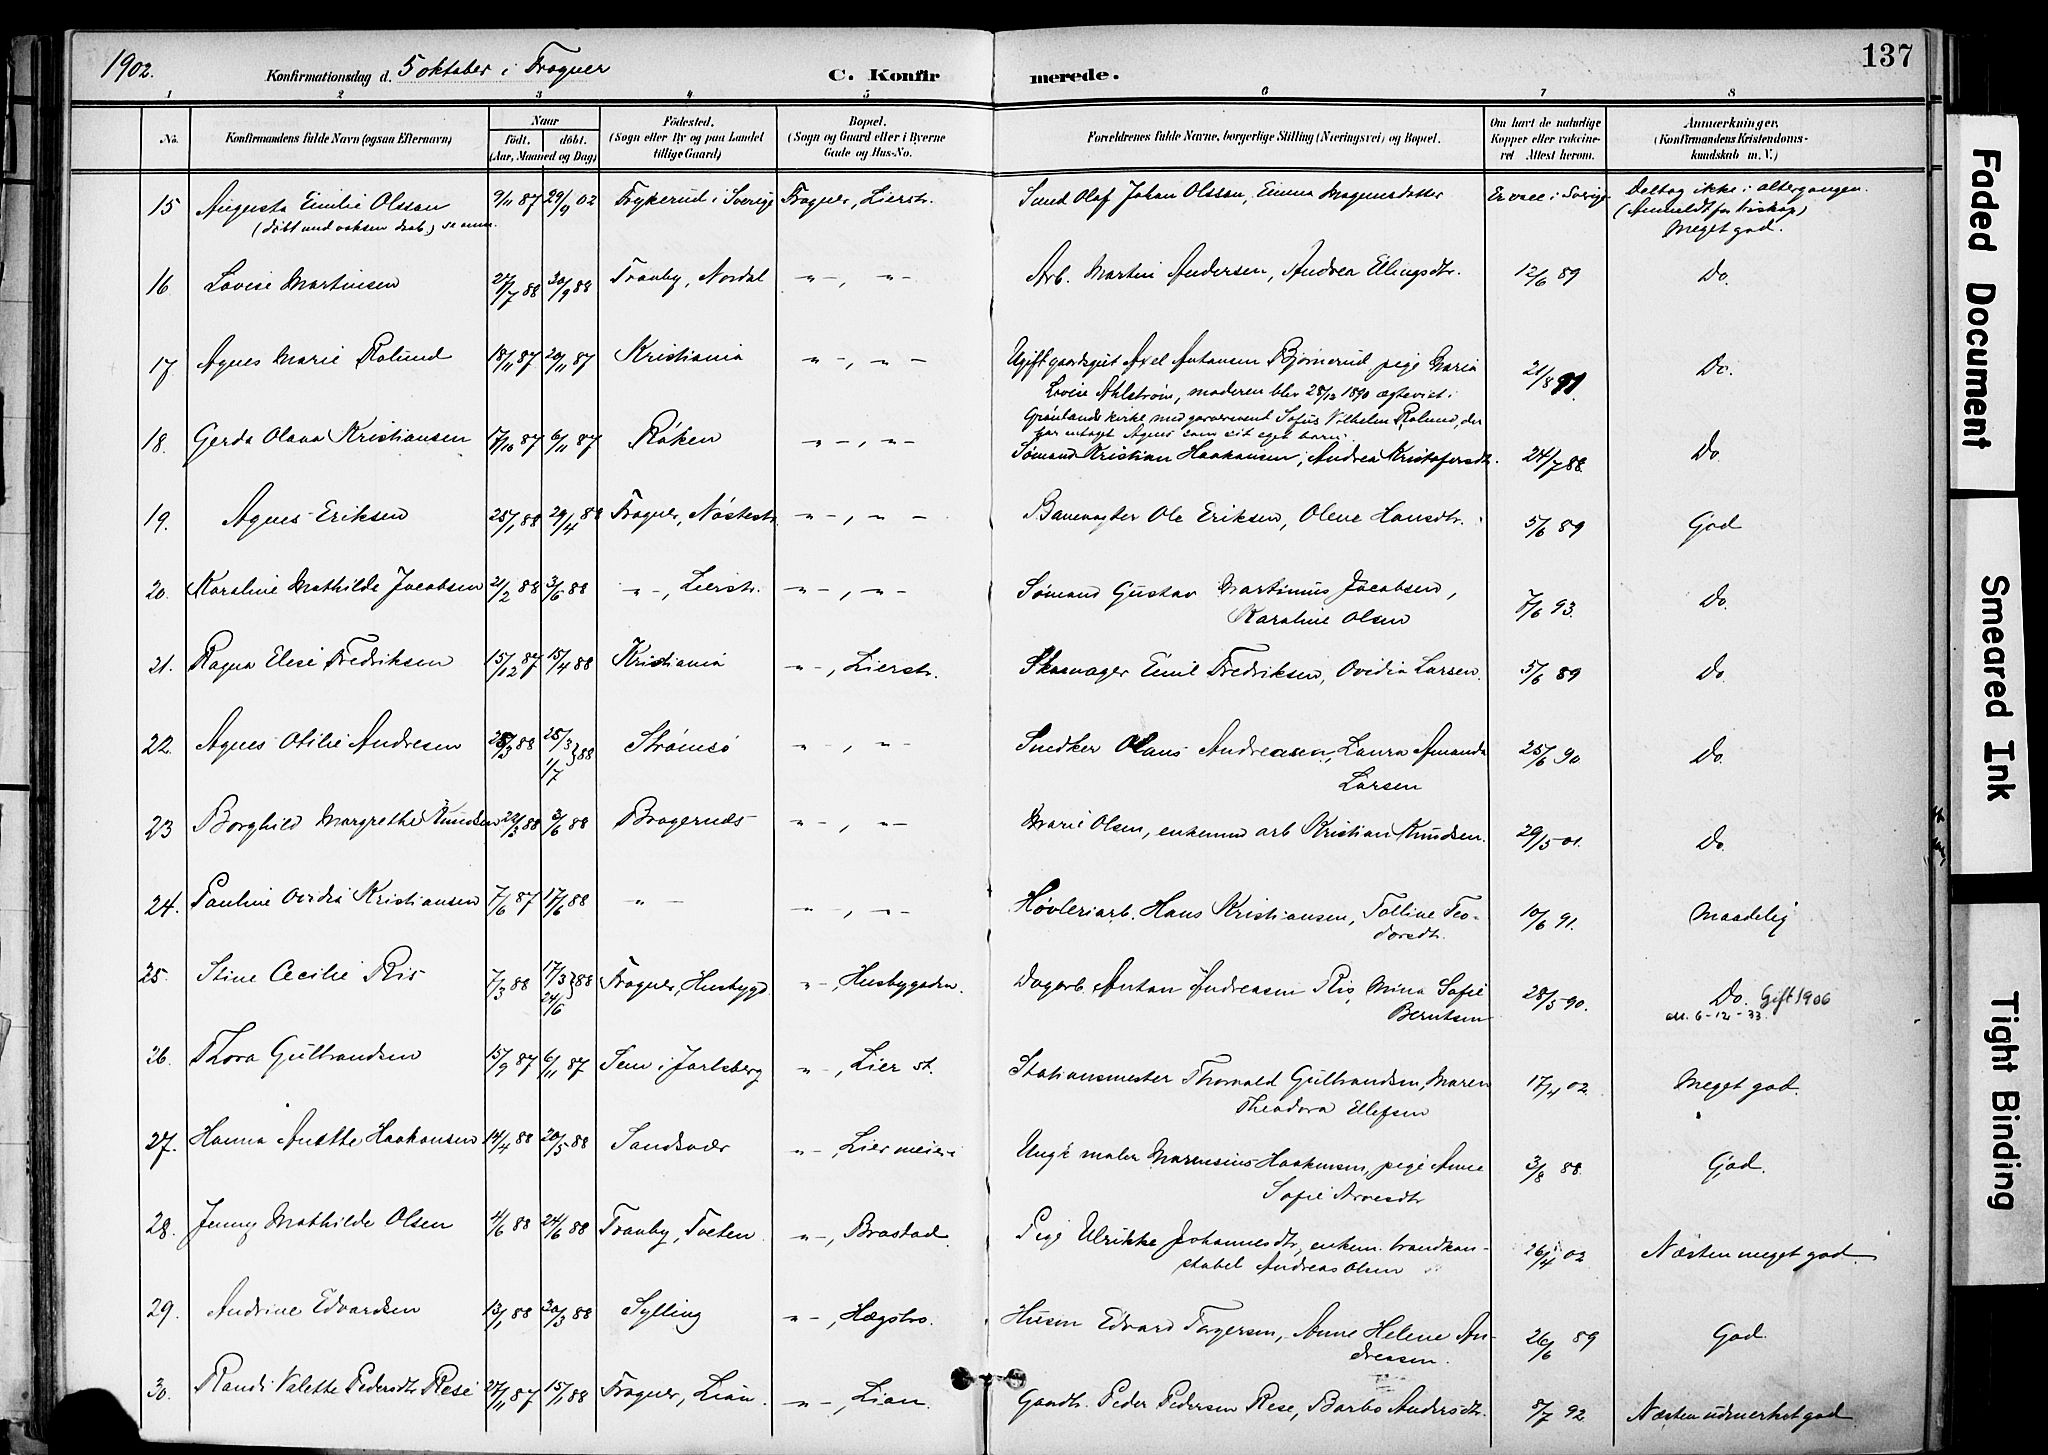 1902.
Konfirmationsdag d. 5 oktober i Frogner
C. Konfir merede.
137
1 2 3 4 5 6 7 8
No.
Konfirmandens fulde Navn (ogsaa Efternavn)
Naar
födt. döbt.
(Aar, Maaned og Dag)
Födested.
(Sogn eller By og paa Landet
tillige Gaard)
Bopæl.
(Sogn og Gaard eller i Byerne
Gade og Hus-No.
Forældrenes fulde Navne, borgerlige Stilling (Næringsvei) og Bopæl.
Om havt de naturlige
Kopper eller vakcine-
ret Attest herom.
Anmærkninger.
(Konfirmandens Kristendoms-
kundskab m. V.)
15 Augusta Emilie Olssan 9/11 87 29/9 02 Frykerud i Sverige Frogner, Lierst. Smed Olaf Johan Olssan, Emma Magnusdotter Er vacc i Sverige Deltog ikke i altergangen.
(døbt ved voksen daab,) (Anmeldt for biskop)
Meget god.
16 Lovise Martinsen 27/7 88 30/9 88 Tranby, Nordal -"-, -"- Arb. Martin Andersen, Andrea Ellingsdtr. 12/6 89 Do.
17 Agnes Marie Rolund 18/11 87 20/11 87 Kristiania -"-, -"- Ugift gaardsgut Axel Antonsen Bjørnerud, pige Maria 21/8 91. Do.
Lovise Ahlstrøm, moderen blev 28/12 1890 ægteviet i
Grønlands kirke med garversvend Sofus Vilhelm Rolund, der
har antaget Agnes som sit eget barn.
18. Gerda Olava Kristiansen 17/10 87 6/11 87 Røken -"-, -"- Sømand Kristian Haakansen, Andrea Kristofersdtr. 24/7 88. Do
19. Agnes Eriksen 25/1 88 29/4 88 Frogner, Nøstestr. -"-, -"- Banevogter Ole Eriksen, Olene Hansdtr. 5/6 89 God
20. Karoline Mathilde Jacobsen 21/2 88 3/6 88 -"-, Lierstr. -"-, -"- Sømand Gustav Martinus Jacobsen, 7/6 93. Do.
Karoline Olsen
21. Ragna Elise Fredriksen 15/12 87 15/4 88 Kristiania -"-, Lierstr. Skomager Emil Fredriksen, Ovidia Larsen. 5/6 89 Do.
22. Agnes Otilie Andresen 25/3 88 25/3 1/7 }88 Strømsø -"-, -"- Snedker Olaus Andreasen, Laura Amanda 25/6 90. Do.
Larsen
23 Borghild Margrethe Knudsen 22/3 88 3/6 88 Bragernæs -"-, -"- Marie Olsen, enkemd arb Kristian Knudsen. 29/5 01. Do.
24. Pauline Ovidia Kristiansen 7/6 87 17/6 88 -"- -"-, -"- Høvleriarb. Hans Kristiansen, Tolline Teo- 10/6 91. Maadelig
dorsdtr.
25. Stine Cecilie Ris 7/3 88 17/3 24/6 }88 Frogner, Husbygd. -"-, Husbygaden. Dagarb. Anton Andreasen Ris, Mina Sofie 28/5 90. Do. Gift 1906
Berntsen att. 6-12-33.
26. Thora Gulbrandsen 15/9 87 6/11 87 Sem i Jarlsberg -"-, Lier st. Stationsmester Thorvald Gulbrandsen, Maren 17/4 02. Meget god.
Theodora Ellefsen
27. Hanna Anette Haakansen 14/4 88 20/5 88 Sandsvær -"-, Lier meieri Ungk maler Marensius Haakansen, pige Anne 3/8 88. God.
Sofie Arvesdtr
28. Jenny Mathilde Olsen 4/6 88 24/6 88 Tranby, Tveten. -"-, Brastad. Pige Ulrikke Johannesdtr, enkem. brandkon- 26/4 02 Næsten meget god.
stabel Andreas Olsen
29. Andrine Edvardsen 13/1 88 30/3 88 Sylling -"-, Hægstro. Husm Edvard Torgersen, Anne Helene An- 26/6 89 God.
dreasen.
30. Randi Valette Pedersdtr Rese 27/11 87 15/1 88 Frogner, Lian. -"-, Lian. Gaardbr. Peder Pedersen Rese, Barbo Andersdtr. 8/7 92. Næsten udmerket god
Faded Document
Smeared Ink
Tight Binding